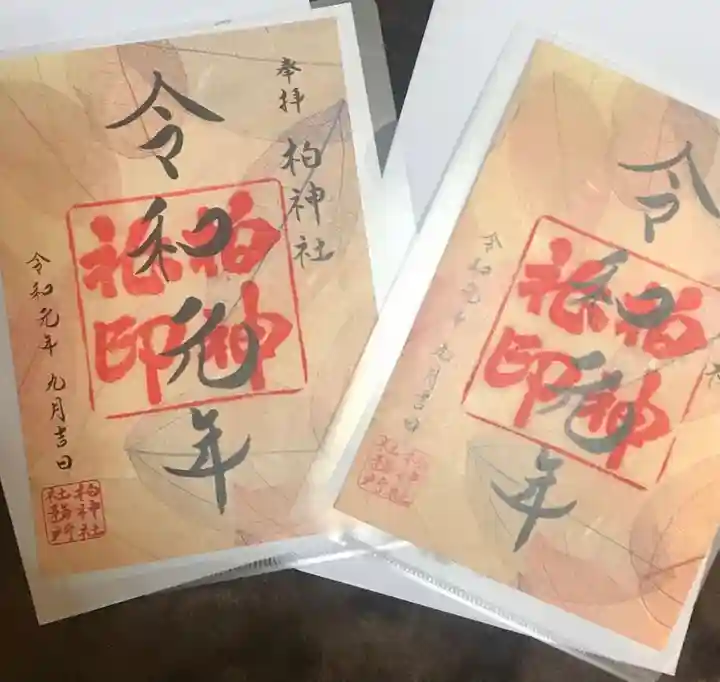 奉拝
柏神社
令和元年
柏神社印
令和元年 九月吉日
柏神社
社務所
令和元年
柏神社印
令和元年 九月吉日
柏神社
社務所